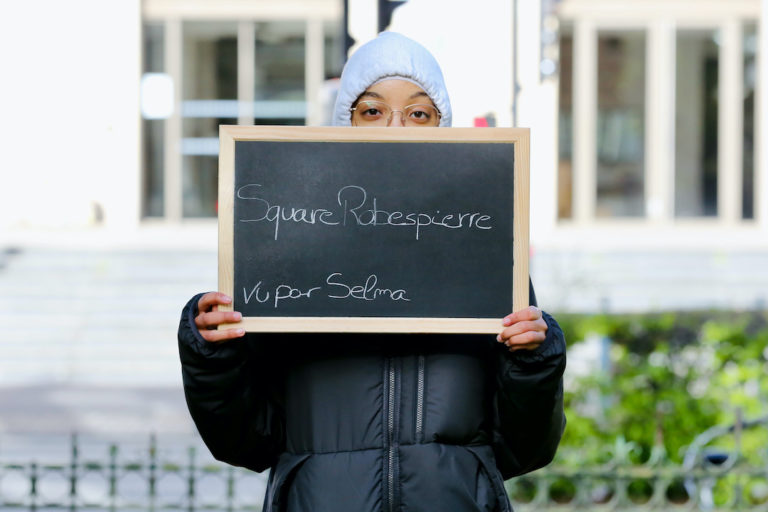 Square Robespierre
vu par Selma